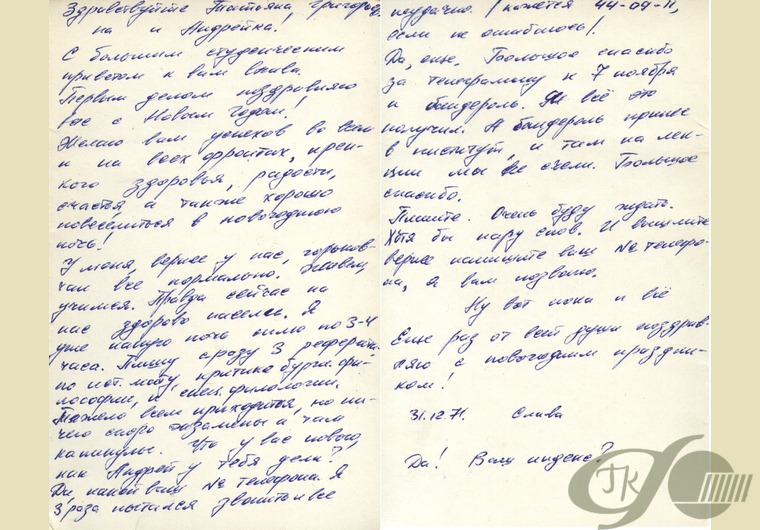 Здравствуйте Татьяна, Григорьев
на и Андрейка!
С большим студенческим
приветом к вам Слава.
Первым делом поздравляю
вас с Новым Годом!
Желаю вам успехов во всем
и на всех фронтах, креп-
кого здоровья, радости,
счастья, а также хорошо
повеселиться в новогоднюю
ночь!
У меня, вернее у нас, горьков-
чан все нормально. Живем,
учимся. Правда сейчас на
нас здорово насели. Я
уже какую ночь сплю по 3-4
часа. Пишу сразу 3 реферата:
по ист. мату, критике бурж. фи-
лософии, и спец. филологии.
Тяжело всем приходится, но ни-
чего скоро экзамены и там
каникулы. Что у вас нового,
как Андрей у тебя дела?
Да, какой ваш № телефона. Я
3 раза пытался звонить и все
неудачно. (кажется 44-09-11,
если не ошибаюсь).
Да, еще. Большое спасибо
за телеграмму к 7 ноября
и бандероль. Я всё это
получил. А бандероль принес
в институт, и там на лек-
ции мы ее съели. Большое
спасибо.
Пишите. Очень буду ждать.
Хотя бы пару слов. И
вернее напишите ваш № телефо-
на, я вам позвоню.
Ну вот пока и всё
Еще раз от всей души поздрав-
ляю с новогодним праздни-
ком!
31.12.71. Слава
Да! Ваш индекс?
ГК